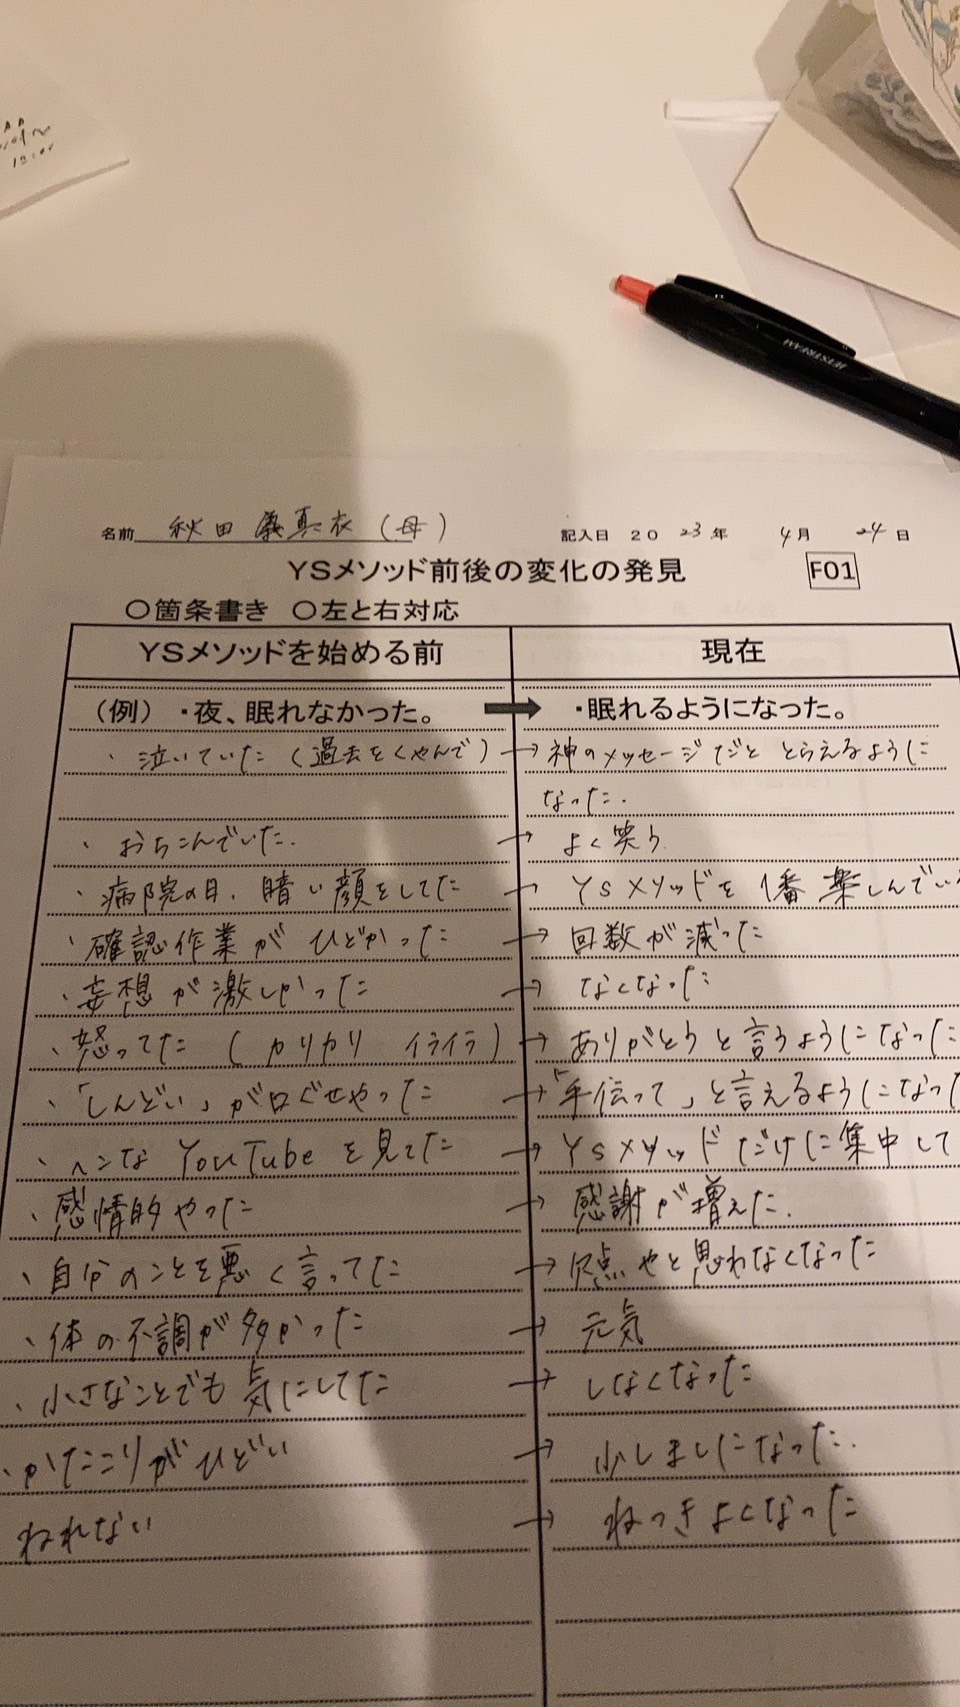 名前 秋田 真衣(母) 記入日 2023年 4月 24日
YSメソッド前後の変化の発見 F01
○箇条書き ○左と右対応
YSメソッドを始める前 現在
(例) ・夜、眠れなかった。 ➡ ・眠れるようになった。
・泣いていた(過去をくやんで) → 神のメッセージだと とらえるように
なった.
・おちこんでいた. → よく笑う
・病院の日、暗い顔をしてた → YSメソッドを1番楽しんでい
・確認作業が ひどかった → 回数が減った
・妄想が激しかった → なくなった
・怒ってた(カリカリ イライラ) → ありがとうと言うようになった
・「しんどい」が口ぐせやった → 「手伝って」と言えるようになっ
・ヘンな YouTube を見てた → YSメソッドだけに集中して
・感情的やった → 感謝が増えた.
・自分のことを悪く言ってた → 欠点やと思わなくなった
・体の不調が多かった → 元気
・小さなことでも気にしてた → しなくなった
・かたこりがひどい → 少しましになった.
ねれない → ねつきよくなった
JETSTREAM